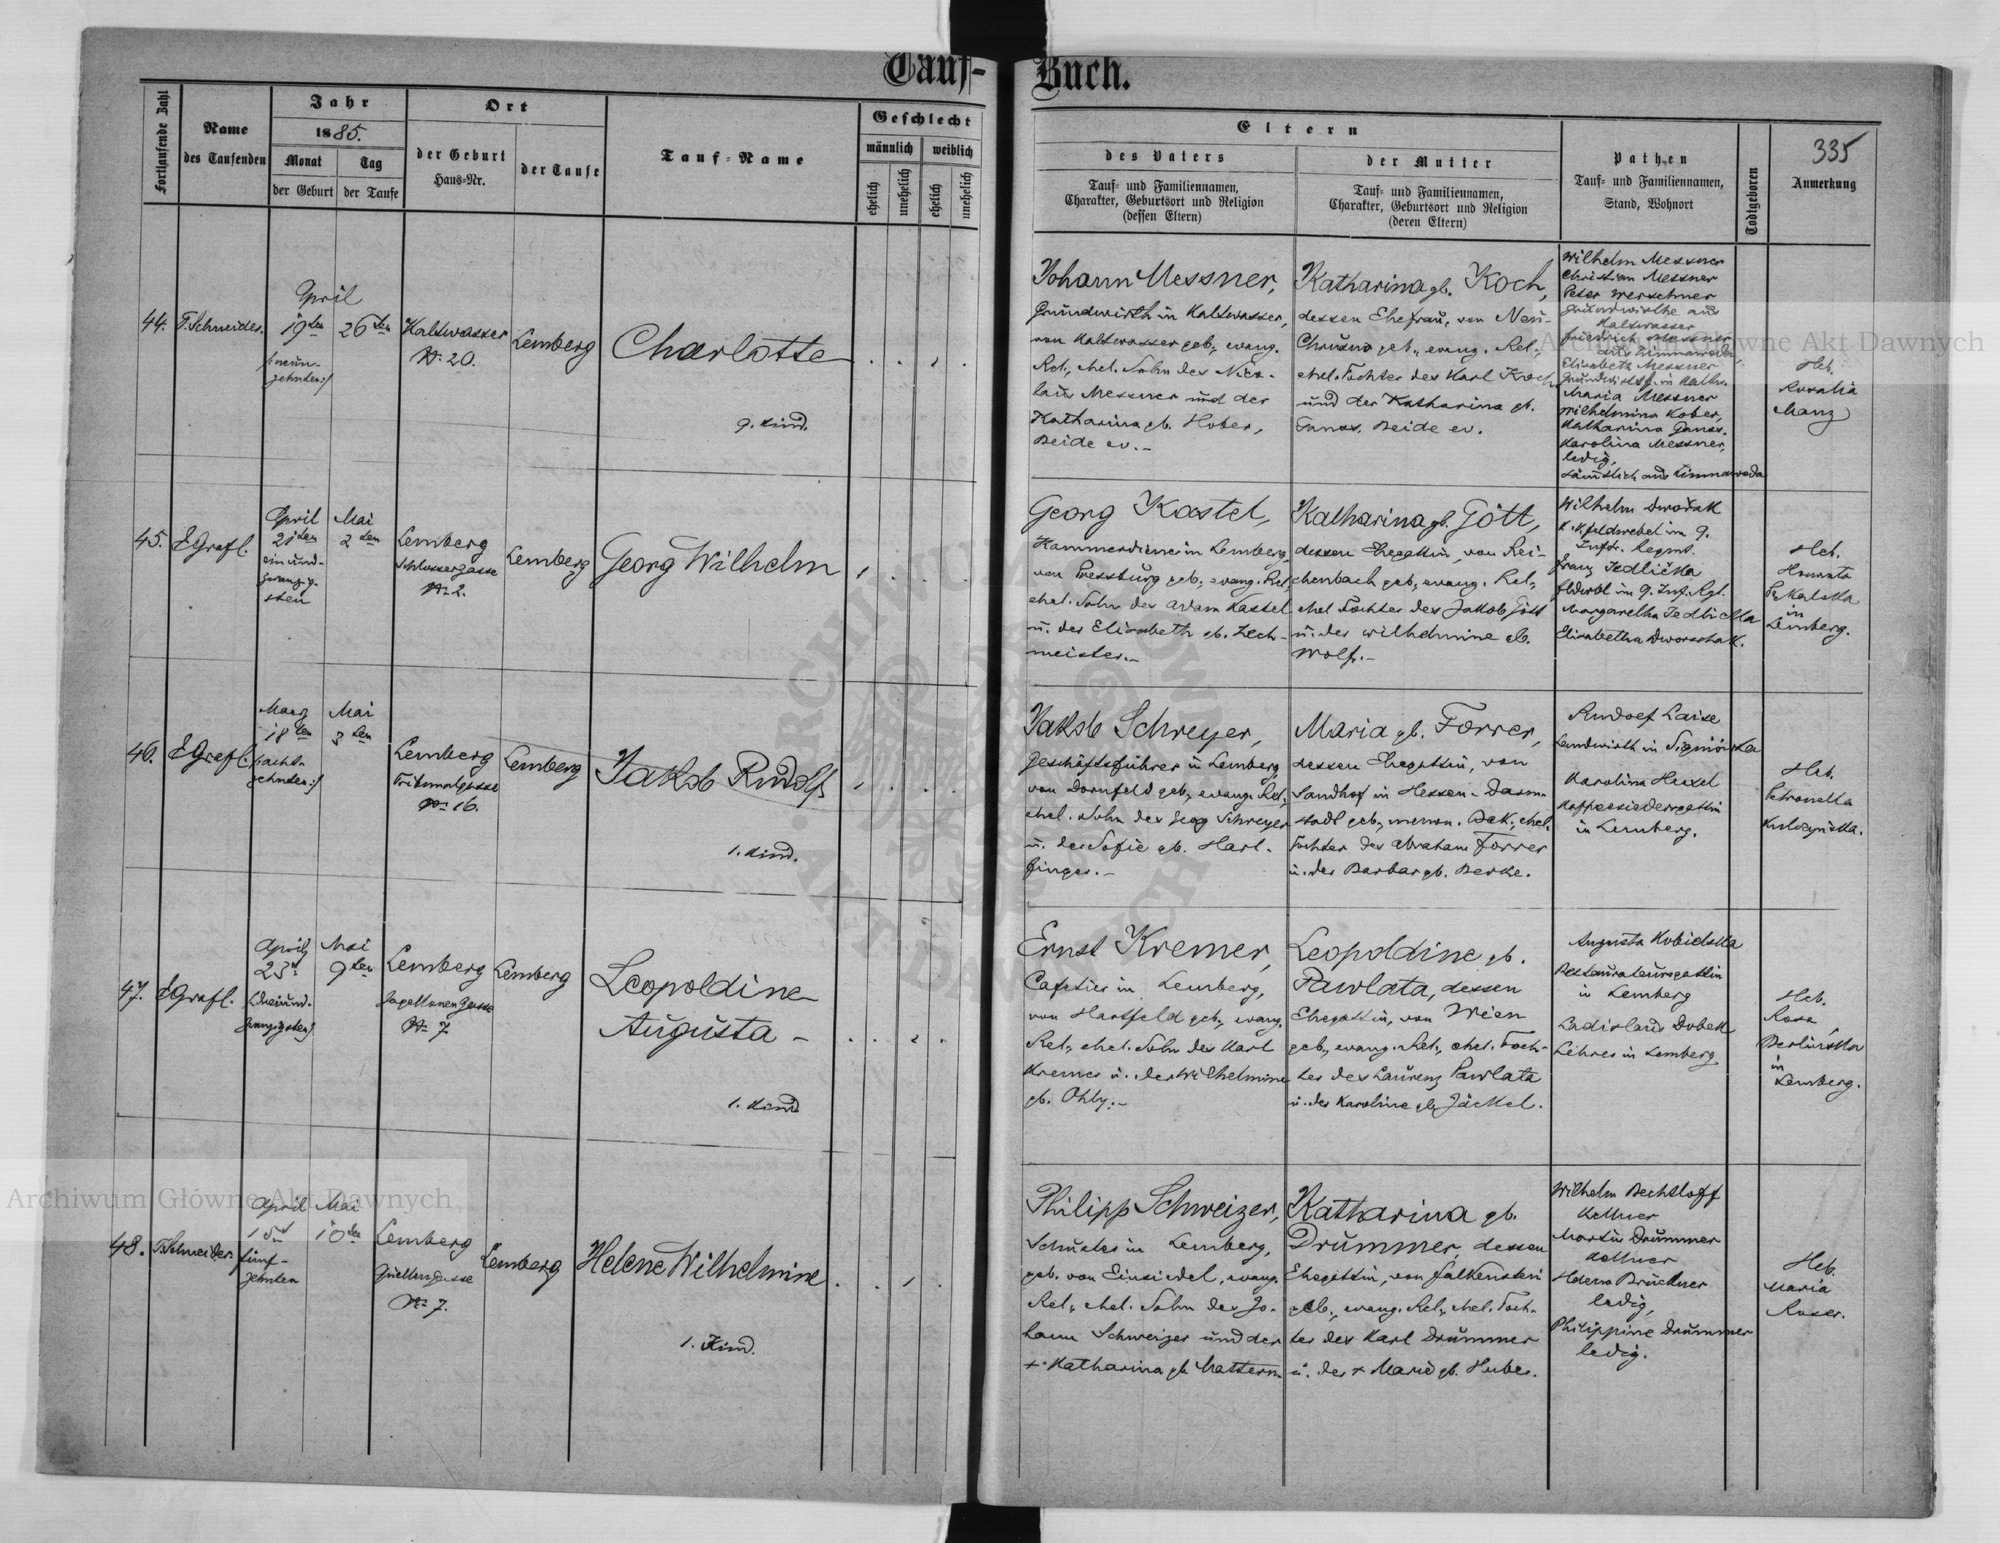 Tauf-Buch.
335
Fortlaufende Zahl
Name
des Taufenden
Jahr
1885.
Monat
der Geburt
Tag
der Taufe
Ort
der Geburt
Haus-Nr.
der Taufe
Tauf-Name
Geschlecht
männlich
weiblich
ehelich
unehelich
ehelich
unehelich
Eltern
des Vaters
Tauf- und Familiennamen,
Charakter, Geburtsort und Religion
(dessen Eltern)
der Mutter
Tauf- und Familiennamen,
Charakter, Geburtsort und Religion
(deren Eltern)
Pathen
Tauf- und Familiennamen,
Stand, Wohnort
Todtgeboren
Anmerkung
44.
T. Schneider.
April
19ten
26ten
(neun-
zehnten)
Kaltwasser
Nr. 20.
Lemberg
Charlotte
9. Kind.
Johann Messner,
Grundwirth in Kaltwasser,
von Kaltwasser geb., evang.
Rel., ehel. Sohn des Nico-
laus Messner und der
Katharina gb. Huber,
Beide ev.-
Katharina gb. Koch,
dessen Ehefrau, von Neu-
Chrusno geb., evang. Rel.,
ehel. Tochter des Karl Koch
und der Katharina gb.
Ganss. Beide ev.
Wilhelm Messner
Christian Messner
Peter Werschner
Grundwirthe aus
Kaltwasser
Friedrich Messner
Elisabeth Messner
Maria Messner
Wilhelmina Kober,
Katharina Ganss.
Karolina Messner,
ledig,
sämtlich aus Zimnawoda
Heb.
Rosalia
Manz
45.
E Grafl.
April
21ten
ein und-
zwanzig-
sten
Mai
2ten
Lemberg
Schlossergasse
Nr. 2.
Lemberg
Georg Wilhelm
Georg Kastel,
Kammerdiener in Lemberg,
von Pressburg geb., evang. Rel,
ehel. Sohn des Adam Kastel
u. der Elisabeth gb. Zech-
meister.-
Katharina gb. Gött,
dessen Ehegattin, von Rei-
chenbach geb., evang. Rel.,
ehel Tochter des Jakob Gött
u. der Wilhelmine gb.
Wolf.-
Wilhelm Dwořak
k. k. Feldwebel im 9.
Inftr. Regmt.
Franz Jedlička
Fldwbl im 9. Inf. Rgt.
Margaretha Jedlička
Elisabetha Dworschak.
Heb.
in
Lemberg.
46.
E Grafl.
Maerz
18ten
(acht-
zehnten)
Mai
3ten
Lemberg
Nr. 16.
Lemberg
Jakob Rudolf
1. Kind.
Jakob Schreyer,
Geschäftsführer in Lemberg,
von Dornfeld geb., evang. Rel.,
ehel. Sohn des Georg Schreyer
u. der Sofie gb. Harl-
finger.-
Maria gb. Forrer,
dessen Ehegattin, von
Sandhof in Hessen-Darm-
stadt geb., menon. Bek., ehel.
Tochter des Abraham Forrer
u. der Barbar gb. Berke.
Rudolf Laise
Landwirth in Sigńiówka
Karolina Hexel
Kaffeesiedersgattin
in Lemberg.
Heb.
Petronella
Kulczynska.
47.
E Grafl.
April
23t
(dreiund-
zwanzigsten)
Mai
9ten
Lemberg
Jagellonen Gasse
Nr. 7
Lemberg
Leopoldine
Augusta -
1. Kind
Ernst Kremer,
Cafetier in Lemberg,
von Hartfeld geb., evang.
Rel., ehel. Sohn des Karl
Kremer u. der Wilhelmine
gb. Ohly.-
Leopoldine gb.
Pawlata, dessen
Ehegattin, von Wien
geb., evang. Rel., ehel. Toch-
ter des Laurenz Pawlata
u. der Karoline gb. Jäckel.
Augusta Kobielska
Restaurateursgattin
in Lemberg
Ladislaus Dobek
Lehrer in Lemberg.
Heb.
Rosa
Berlińska
in
Lemberg.
48.
T. Schneider.
April
15t
fünf-
zehnten
Mai
10ten
Lemberg
Quellengasse
Nr. 7.
Lemberg
Helene Wilhelmine
1. Kind.
Philipp Schweizer,
Schuster in Lemberg,
geb. von Einsiedel, evang.
Rel., ehel. Sohn des Jo-
hann Schweizer und der
+ Katharina gb. Mattern
Katharina gb.
Drummer, dessen
Ehegattin, von Falkenstein
geb., evang. Rel., ehel. Toch-
ter des Karl Drummer
u. der + Marie gb. Huber.
Wilhelm Bechtloff
Kellner
Martin Drummer
Kellner
Helena Brückner
ledig,
Philippine Drummer
ledig.
Heb.
Maria
Roser.
Archiwum Główne Akt Dawnych
Archiwum Główne Akt Dawnych